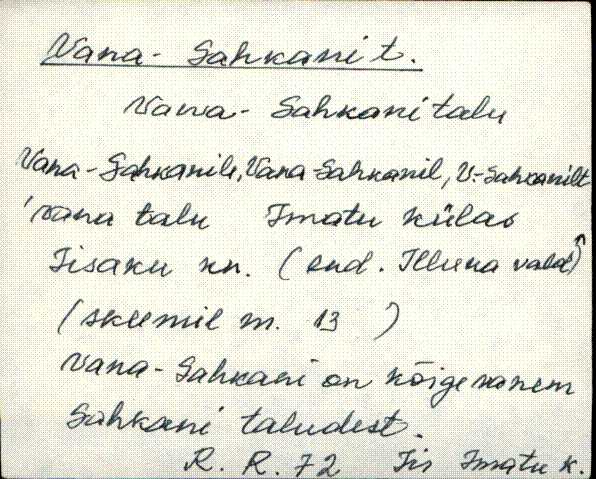 Vana-Sahkani t.
Vana-Sahkani talu
Vana-Sahkanile, Vana-Sahkanil, V.-Sahkanilt
vana talu Imatu külas
Iisaku kn. (end. Illuka vald)
(skeemil m. 13)
Vana-Sahkani on kõige vanem
Sahkani taludest.
R. R. 72 Iis Imatu k.